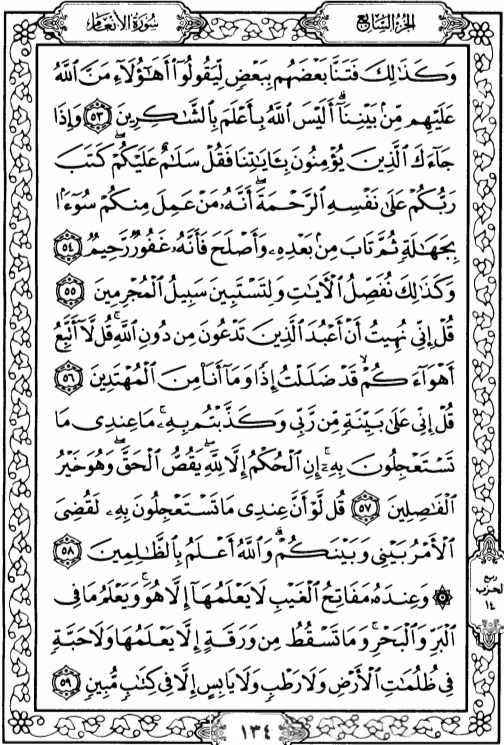 سورة الأنعام
الجزء السابع
وَكَذَٰلِكَ فَتَنَّا بَعْضَهُم بِبَعْضٍ لِّيَقُولُوٓا۟ أَهَٰٓؤُلَآءِ مَنَّ ٱللَّهُ
عَلَيْهِم مِّنۢ بَيْنِنَآ ۗ أَلَيْسَ ٱللَّهُ بِأَعْلَمَ بِٱلشَّٰكِرِينَ ٥٣ وَإِذَا
جَآءَكَ ٱلَّذِينَ يُؤْمِنُونَ بِـَٔايَٰتِنَا فَقُلْ سَلَٰمٌ عَلَيْكُمْ ۖ كَتَبَ
رَبُّكُمْ عَلَىٰ نَفْسِهِ ٱلرَّحْمَةَ ۖ أَنَّهُۥ مَنْ عَمِلَ مِنكُمْ سُوٓءًۢا
بِجَهَٰلَةٍ ثُمَّ تَابَ مِنۢ بَعْدِهِۦ وَأَصْلَحَ فَأَنَّهُۥ غَفُورٌ رَّحِيمٌ ٥٤
وَكَذَٰلِكَ نُفَصِّلُ ٱلْـَٔايَٰتِ وَلِتَسْتَبِينَ سَبِيلُ ٱلْمُجْرِمِينَ ٥٥
قُلْ إِنِّى نُهِيتُ أَنْ أَعْبُدَ ٱلَّذِينَ تَدْعُونَ مِن دُونِ ٱللَّهِ ۚ قُل لَّآ أَتَّبِعُ
أَهْوَآءَكُمْ ۙ قَدْ ضَلَلْتُ إِذًا وَمَآ أَنَا۠ مِنَ ٱلْمُهْتَدِينَ ٥٦
قُلْ إِنِّى عَلَىٰ بَيِّنَةٍ مِّن رَّبِّى وَكَذَّبْتُم بِهِۦ ۚ مَا عِندِى مَا
تَسْتَعْجِلُونَ بِهِۦٓ ۚ إِنِ ٱلْحُكْمُ إِلَّا لِلَّهِ ۖ يَقُصُّ ٱلْحَقَّ ۖ وَهُوَ خَيْرُ
ٱلْفَٰصِلِينَ ٥٧ قُل لَّوْ أَنَّ عِندِى مَا تَسْتَعْجِلُونَ بِهِۦ لَقُضِىَ
ٱلْأَمْرُ بَيْنِى وَبَيْنَكُمْ ۗ وَٱللَّهُ أَعْلَمُ بِٱلظَّٰلِمِينَ ٥٨
۞ وَعِندَهُۥ مَفَاتِحُ ٱلْغَيْبِ لَا يَعْلَمُهَآ إِلَّا هُوَ ۚ وَيَعْلَمُ مَا فِى
ٱلْبَرِّ وَٱلْبَحْرِ ۚ وَمَا تَسْقُطُ مِن وَرَقَةٍ إِلَّا يَعْلَمُهَا وَلَا حَبَّةٍ
فِى ظُلُمَٰتِ ٱلْأَرْضِ وَلَا رَطْبٍ وَلَا يَابِسٍ إِلَّا فِى كِتَٰبٍ مُّبِينٍ ٥٩
ربع
الحزب
١٤
١٣٤